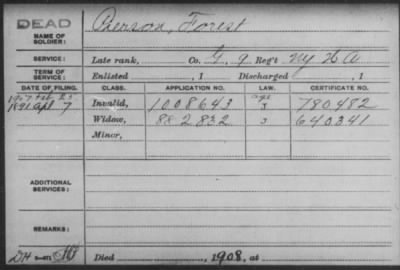 DEAD
NAME OF SOLDIER: Pierson, Forest
SERVICE: Late rank, Co. G, 9 Reg't NY H A
TERM OF SERVICE: Enlisted , 1 Discharged , 1
DATE OF FILING. CLASS. APPLICATION NO. LAW. CERTIFICATE NO.
1907 Feb 25 Invalid, 1008643 age 780482
1891 Apl 7 Widow, 882832 3 640341
Minor,
ADDITIONAL SERVICES:
REMARKS:
Died , 1908, at